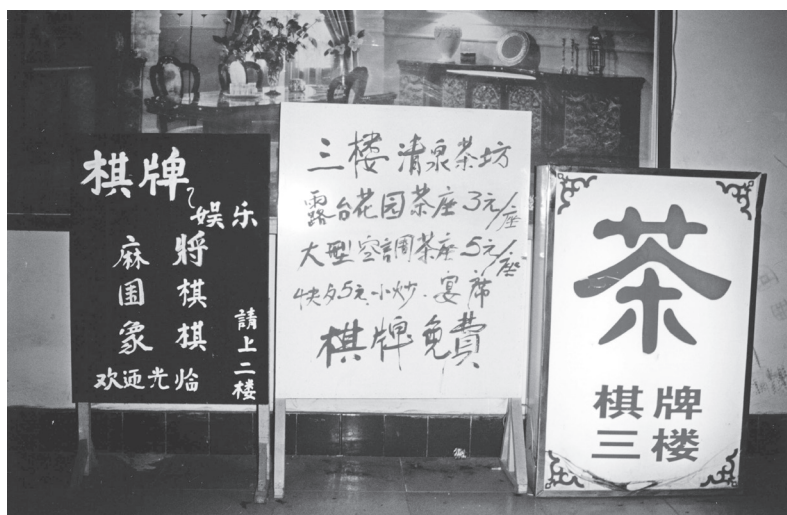 棋牌
娱乐
麻將
围棋
象棋
請上二楼
欢迎光临
三楼清泉茶坊
露台花园茶座3元/座
大型空調茶座5元/座
快歺5元.小炒.宴席
棋牌免費
茶
棋牌
三楼